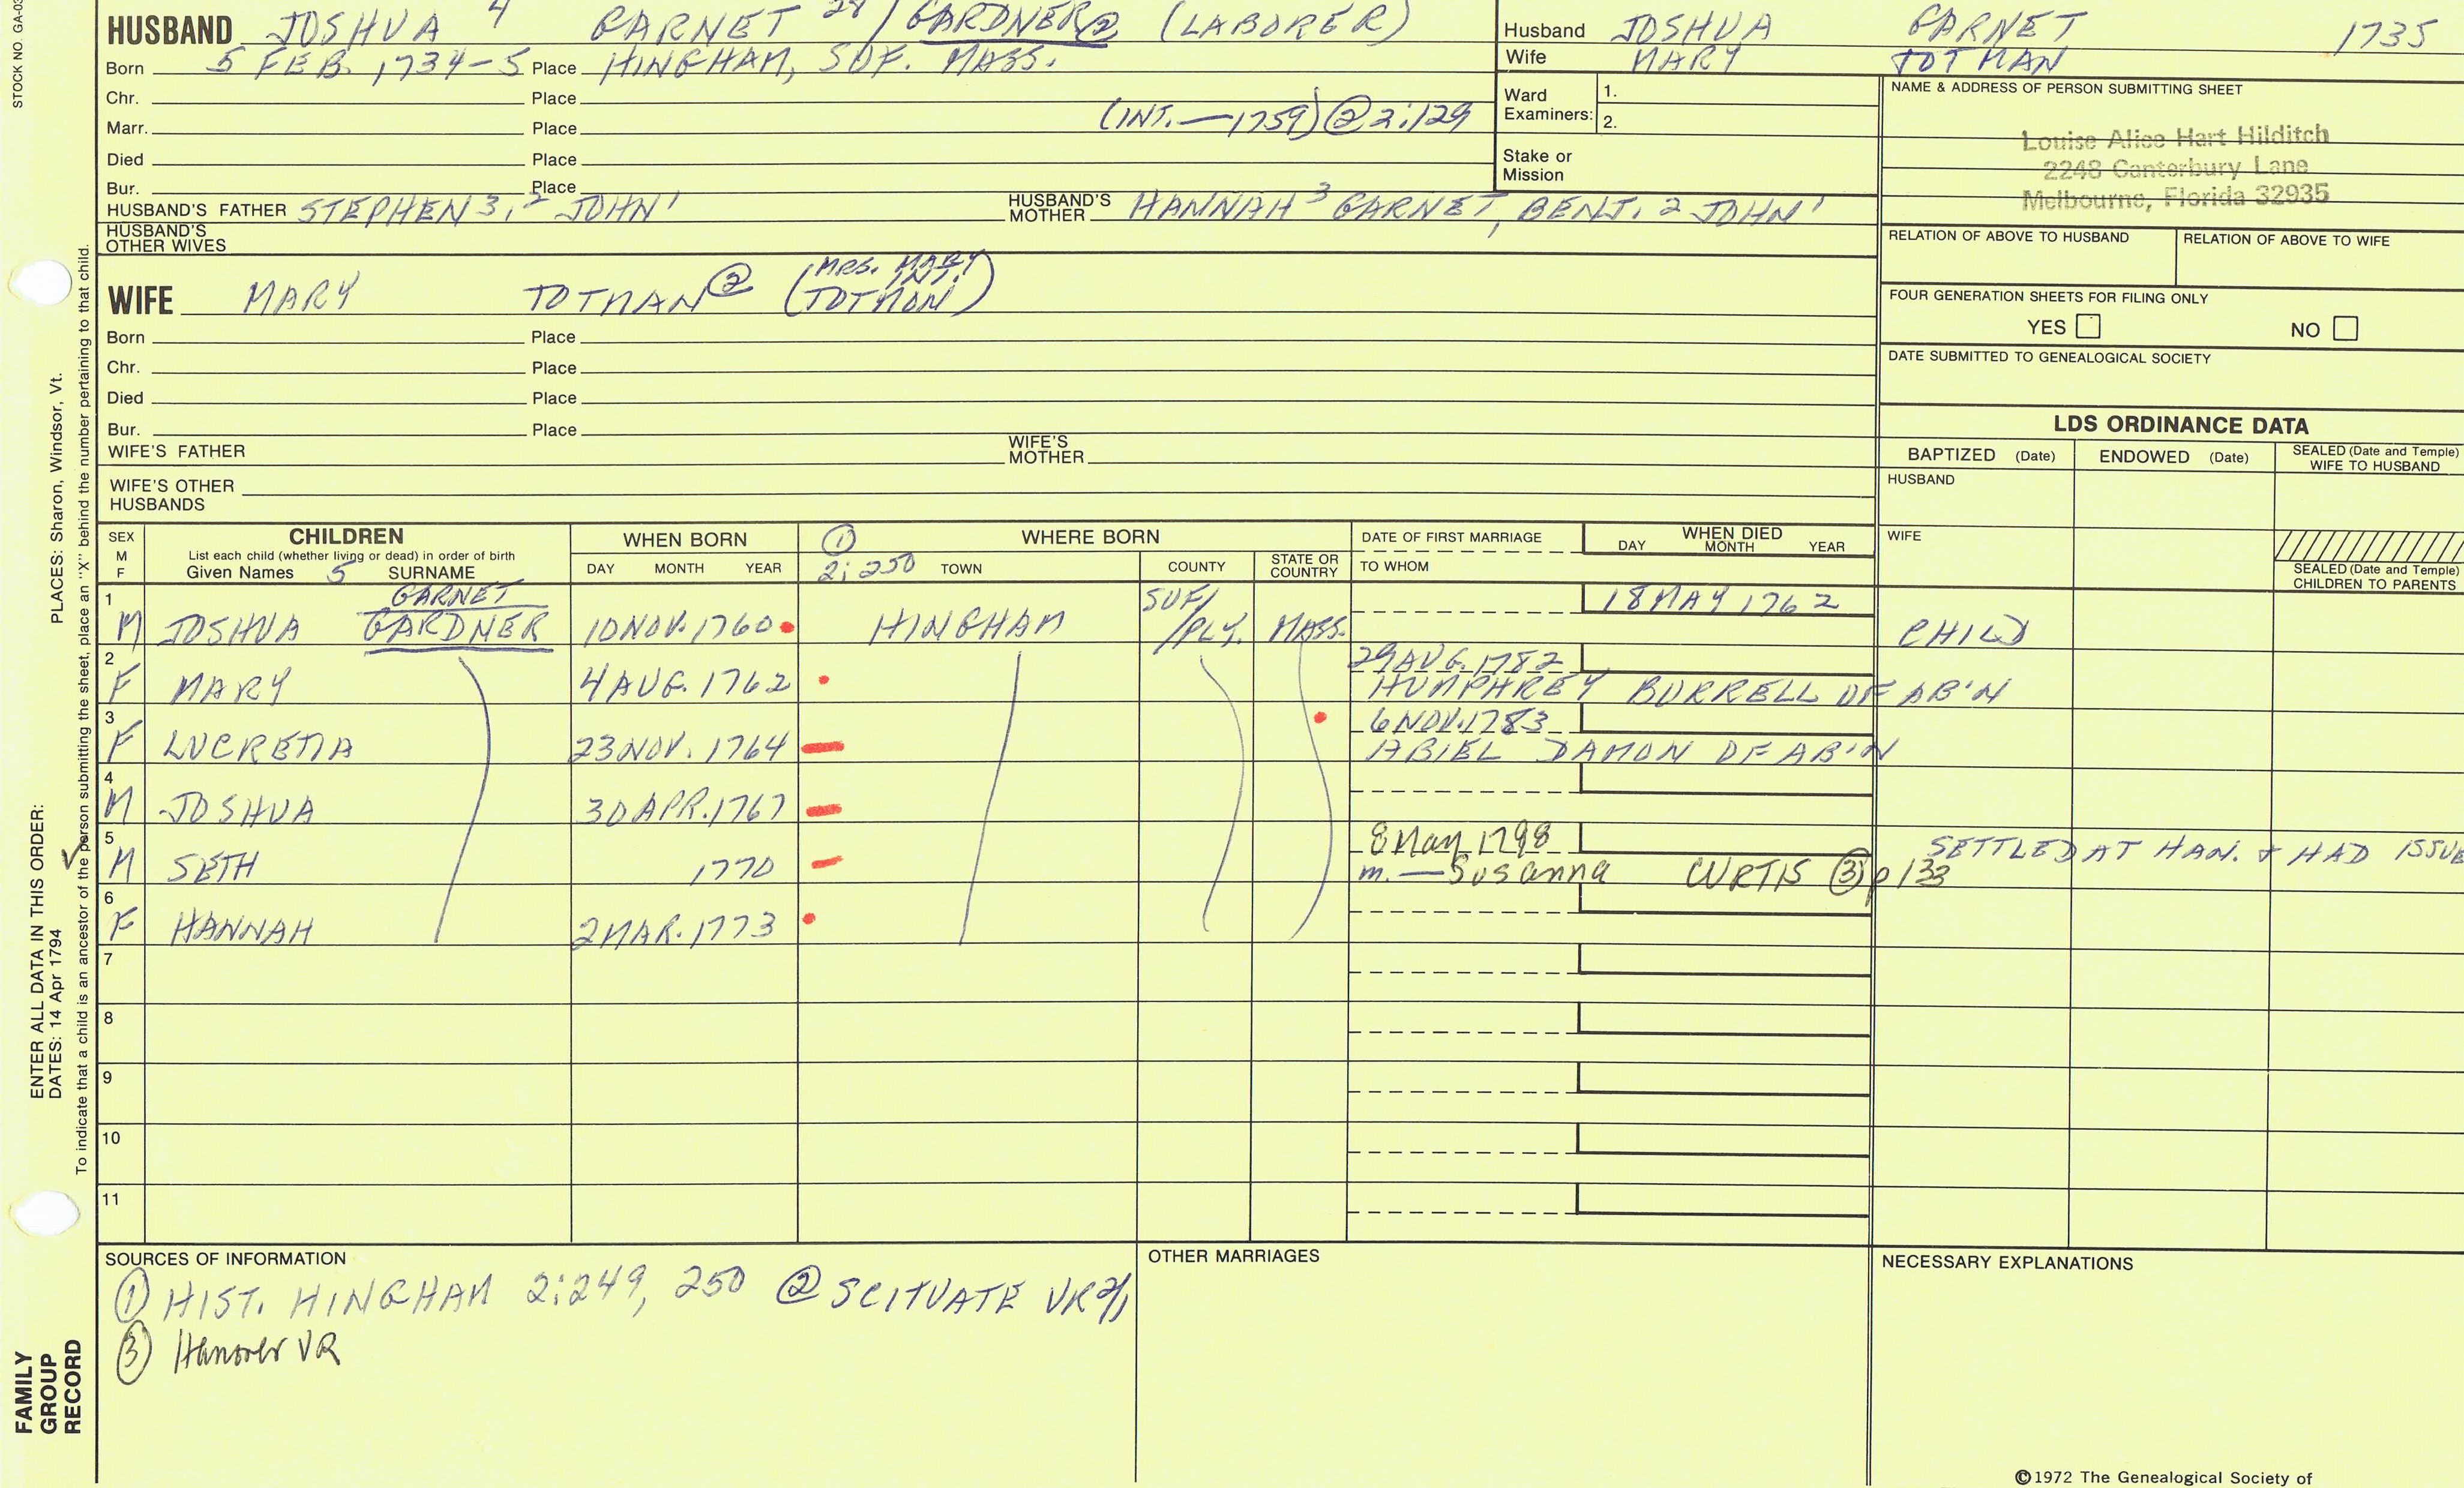 STOCK NO. GA-03
HUSBAND JOSHUA 4 GARNET / GARDNER② (LABORER)
Born 5 FEB. 1734-5 Place HINGHAM, SUF. MASS.
Chr. Place
Marr. Place (INT.—1759) ② 2:129
Died Place
Bur. Place
HUSBAND'S FATHER STEPHEN 3, 2 JOHN 1 HUSBAND'S MOTHER HANNAH 3 GARNET, BENJ. 2 JOHN 1
HUSBAND'S OTHER WIVES
Husband JOSHUA GARNET 1735
Wife MARY TOTMAN
Ward Examiners: 1.
2.
Stake or Mission
NAME & ADDRESS OF PERSON SUBMITTING SHEET
Louise Alice Hart Hilditch
2248 Canterbury Lane
Melbourne, Florida 32935
RELATION OF ABOVE TO HUSBAND RELATION OF ABOVE TO WIFE
FOUR GENERATION SHEETS FOR FILING ONLY
YES NO
DATE SUBMITTED TO GENEALOGICAL SOCIETY
WIFE MARY TOTMAN② (MRS. MARY INT. TOTMON)
Born Place
Chr. Place
Died Place
Bur. Place
WIFE'S FATHER WIFE'S MOTHER
WIFE'S OTHER HUSBANDS
LDS ORDINANCE DATA
BAPTIZED (Date) ENDOWED (Date) SEALED (Date and Temple) WIFE TO HUSBAND
HUSBAND
WIFE
SEALED (Date and Temple) CHILDREN TO PARENTS
SEX M F CHILDREN WHEN BORN ① WHERE BORN DATE OF FIRST MARRIAGE WHEN DIED
List each child (whether living or dead) in order of birth
Given Names 5 SURNAME DAY MONTH YEAR 2:250 TOWN COUNTY STATE OR COUNTRY TO WHOM DAY MONTH YEAR
1 M JOSHUA GARNET GARDNER 10 NOV. 1760 HINGHAM SUF/ /PLY. MASS. 18 MAY 1762 CHILD
2 F MARY 4 AUG. 1762 29 AUG. 1782
HUMPHREY BURRELL OF AB'N
3 F LUCRETIA 23 NOV. 1764 6 NOV. 1783
ABIEL DAMON OF AB'N
4 M JOSHUA 30 APR. 1767
5 M SETH 1770 8 May 1798 SETTLED AT HAN. + HAD ISSUE
m.—Susanna CURTIS ③ p 133
6 F HANNAH 2 MAR. 1773
7
8
9
10
11
SOURCES OF INFORMATION
① HIST. HINGHAM 2:249, 250 ② SCITUATE VR
③ Hanover VR
OTHER MARRIAGES
NECESSARY EXPLANATIONS
©1972 The Genealogical Society of
ENTER ALL DATA IN THIS ORDER:
DATES: 14 Apr 1794 PLACES: Sharon, Windsor, Vt.
To indicate that a child is an ancestor of the person submitting the sheet, place an "X" behind the number pertaining to that child.
FAMILY
GROUP
RECORD